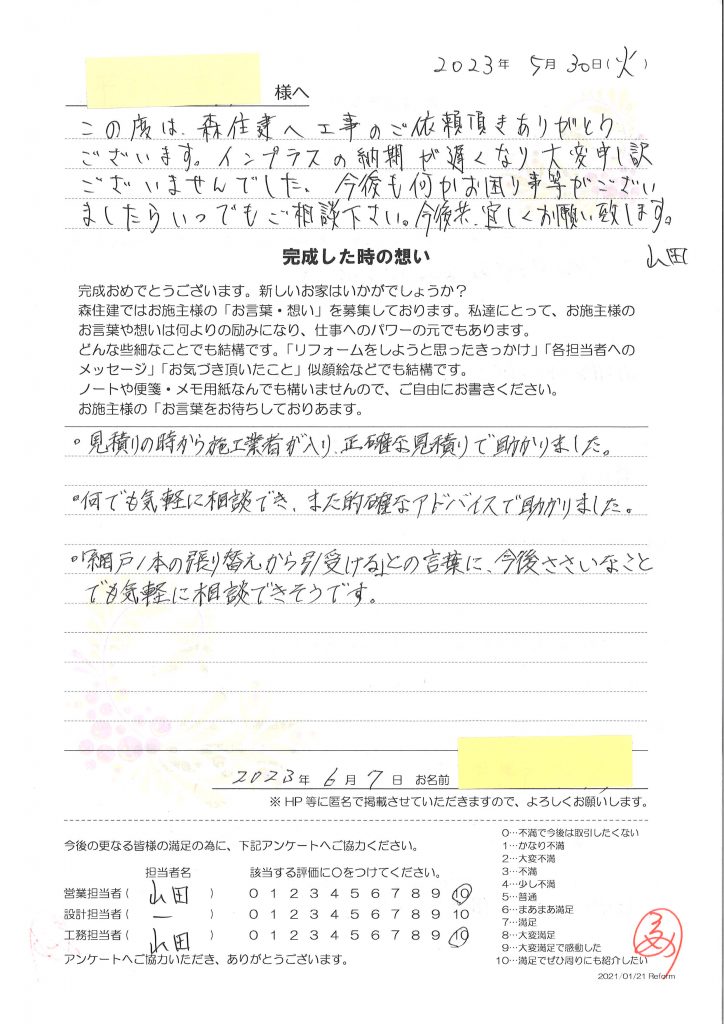 2023年 5月30日(火)
様へ
この度は、森住建へ工事のご依頼頂きありがとう
ございます。インプラスの納期が遅くなり大変申し訳
ございませんでした、今後も何かお困り事等がござい
ましたらいつでもご相談下さい。今後共、宜しくお願い致します。
山田
完成した時の想い
完成おめでとうございます。新しいお家はいかがでしょうか?
森住建ではお施主様の「お言葉・想い」を募集しております。私達にとって、お施主様の
お言葉や想いは何よりの励みになり、仕事へのパワーの元でもあります。
どんな些細なことでも結構です。「リフォームをしようと思ったきっかけ」「各担当者への
メッセージ」「お気づき頂いたこと」似顔絵などでも結構です。
ノートや便箋・メモ用紙なんでも構いませんので、ご自由にお書きください。
お施主様の「お言葉をお待ちしておりあます。
○見積りの時から施工業者が入り、正確な見積りで助かりました。
○何でも気軽に相談でき、また的確なアドバイスで助かりました。
○「網戸1本の張り替えから引受ける」との言葉に、今後ささいなこと
でも気軽に相談できそうです。
2023年 6月 7日 お名前
※HP等に匿名で掲載させていただきますので、よろしくお願いします。
今後の更なる皆様の満足の為に、下記アンケートへご協力ください。
担当者名 該当する評価に○をつけてください。
営業担当者( 山田 ) 0 1 2 3 4 5 6 7 8 9 10
設計担当者( ー ) 0 1 2 3 4 5 6 7 8 9 10
工務担当者( 山田 ) 0 1 2 3 4 5 6 7 8 9 10
アンケートへご協力いただき、ありがとうございます。
0…不満で今後は取引したくない
1…かなり不満
2…大変不満
3…不満
4…少し不満
5…普通
6…まあまあ満足
7…満足
8…大変満足
9…大変満足で感動した
10…満足でぜひ周りにも紹介したい
2021/01/21 Reform